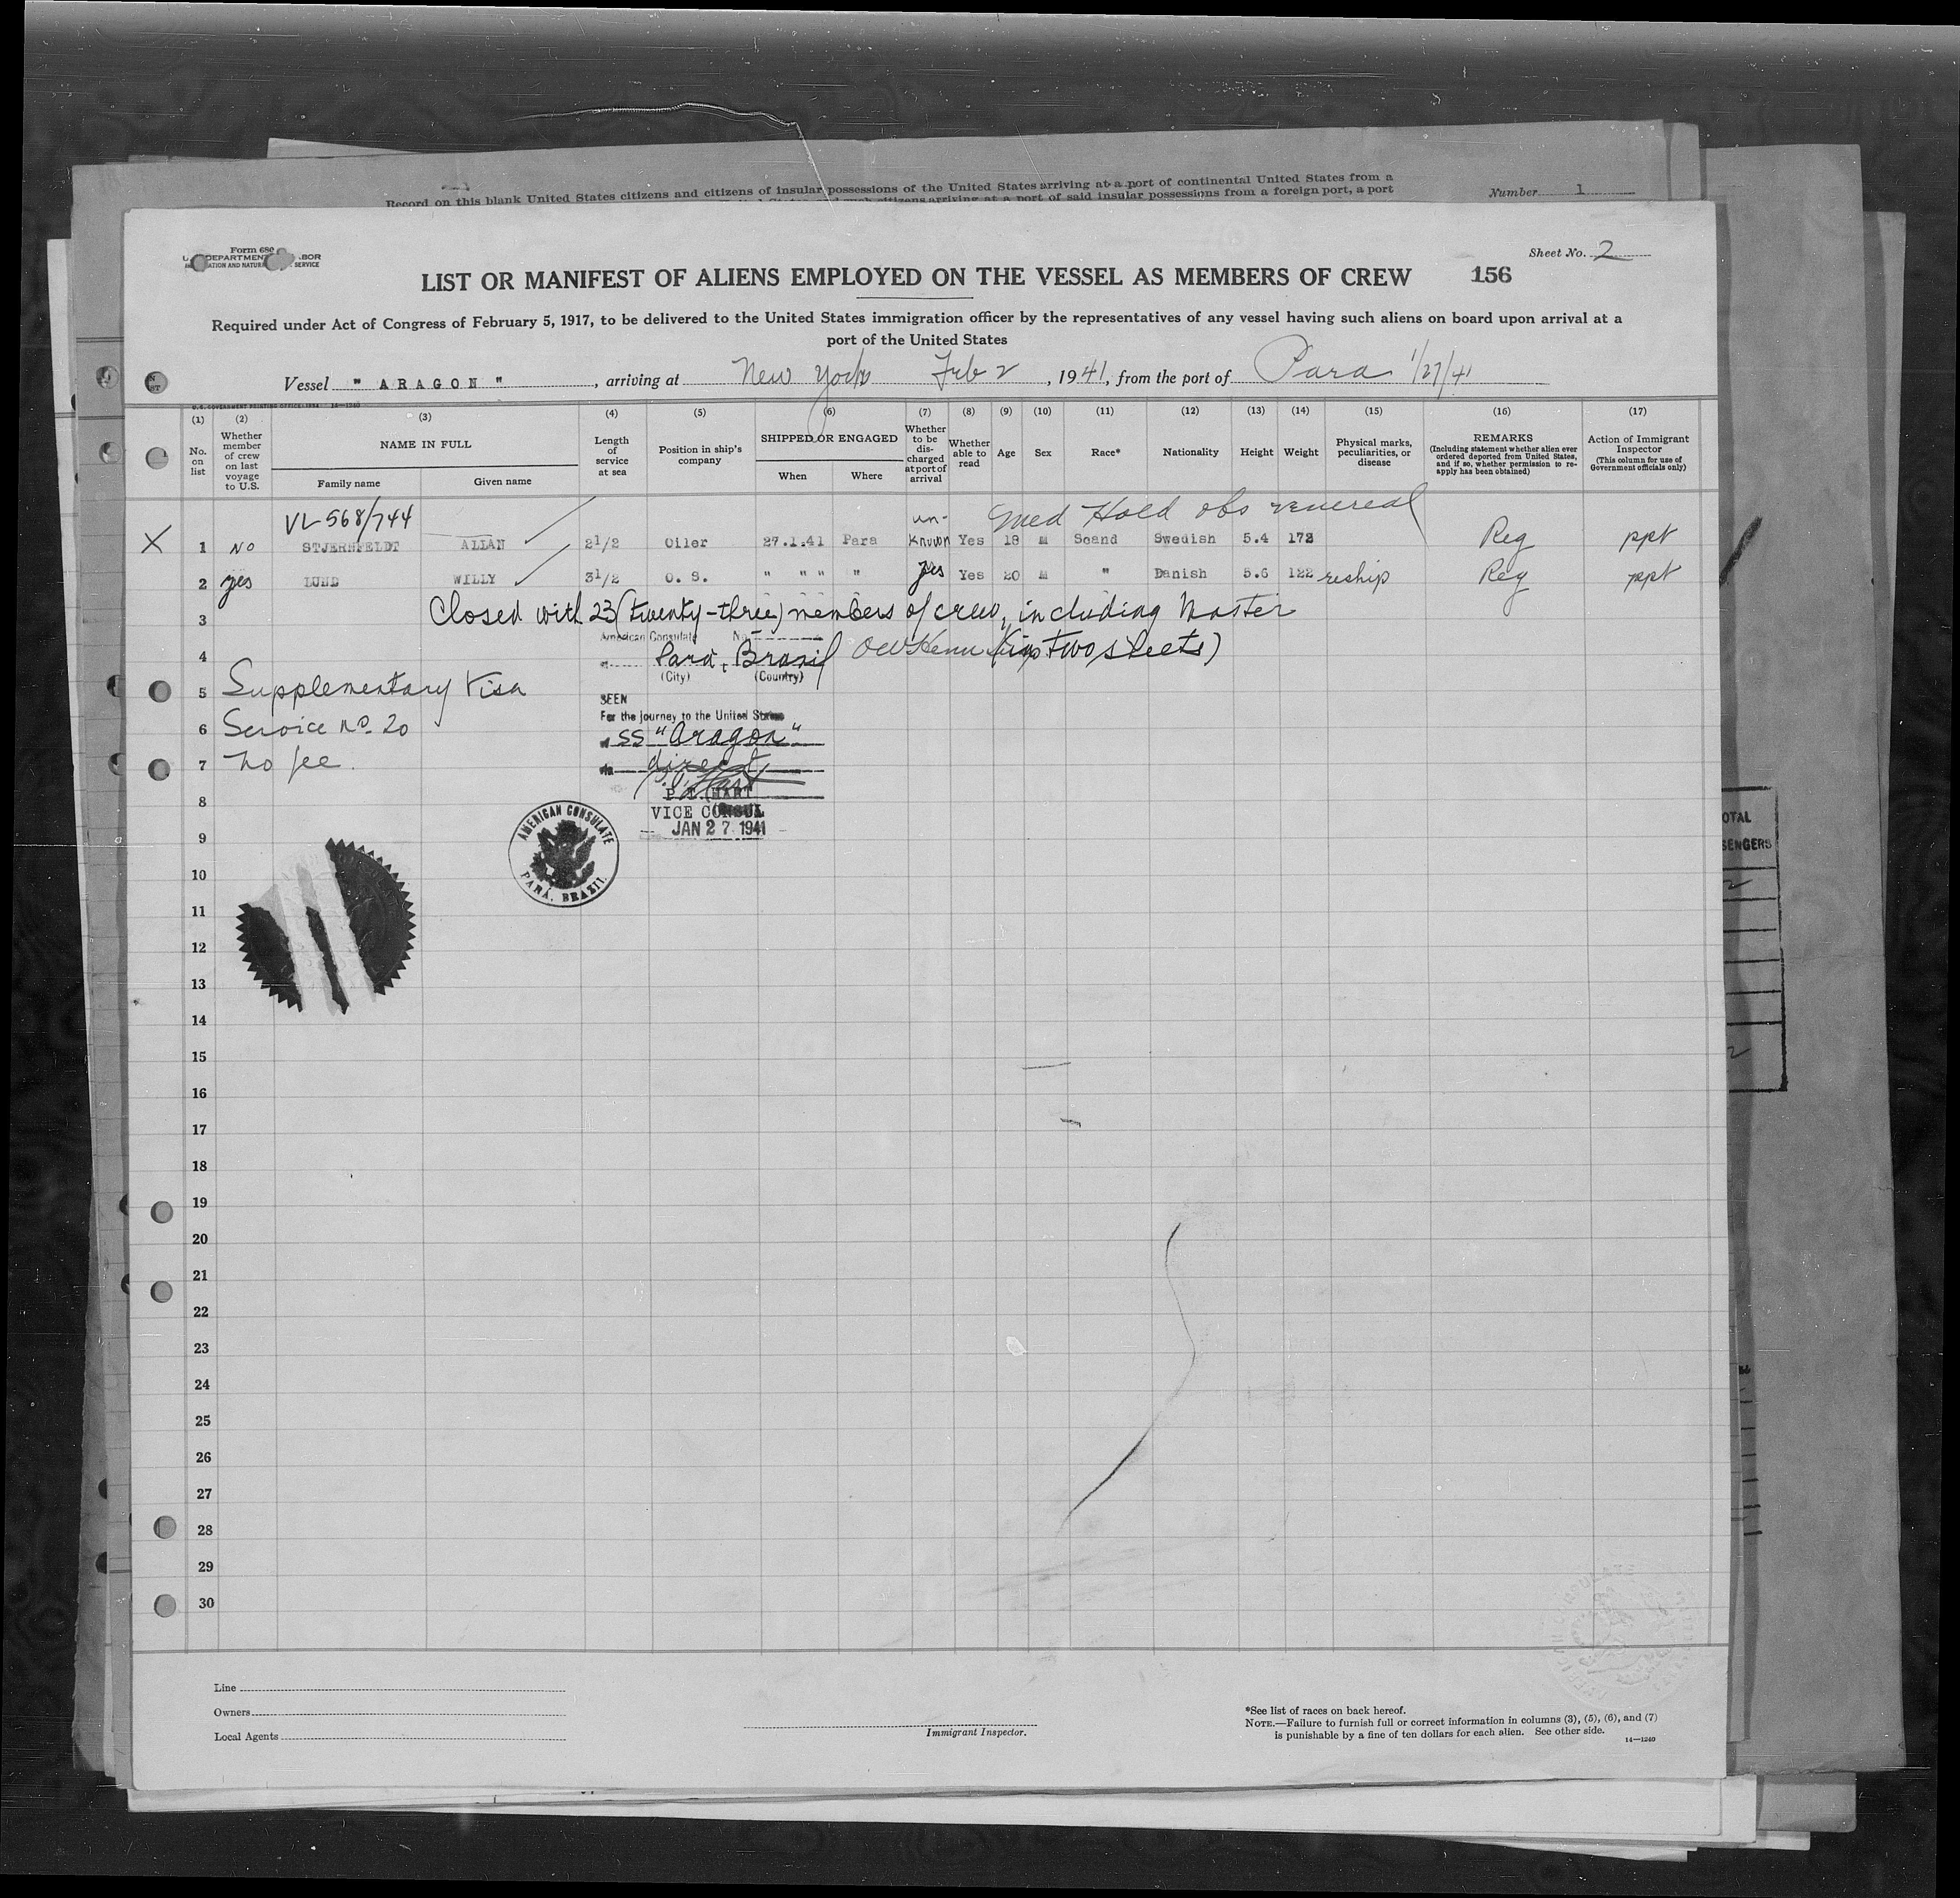 Record on this blank United States citizens and citizens of insular possessions of the United States arriving at a port of continental United States from a
citizens arriving at a port of said insular possessions from a foreign port, a port
Number 1
Form 680
DEPARTMENT BOR
ATION AND NATUR SERVICE
Sheet No. 2
LIST OR MANIFEST OF ALIENS EMPLOYED ON THE VESSEL AS MEMBERS OF CREW 156
Required under Act of Congress of February 5, 1917, to be delivered to the United States immigration officer by the representatives of any vessel having such aliens on board upon arrival at a
port of the United States
Vessel "ARAGON", arriving at New York Feb 2, 1941, from the port of Para 1/27/41
U.S. GOVERNMENT PRINTING OFFICE: 1934 14—1240
(1) (2) (3) (4) (5) (6) (7) (8) (9) (10) (11) (12) (13) (14) (15) (16) (17)
No. on list
Whether member of crew on last voyage to U.S.
NAME IN FULL
Family name
Given name
Length of service at sea
Position in ship's company
SHIPPED OR ENGAGED
When
Where
Whether to be discharged at port of arrival
Whether able to read
Age
Sex
Race*
Nationality
Height
Weight
Physical marks, peculiarities, or disease
REMARKS
(Including statement whether alien ever ordered deported from United States, and if so, whether permission to reapply has been obtained)
Action of Immigrant Inspector
(This column for use of Government officials only)
VL-568/744 un- Med Hold obs venereal
X 1 No STJERNFELDT ALLAN 2 1/2 Oiler 27.1.41 Para known Yes 18 M Scand Swedish 5.4 172 Reg ppt
2 yes LUND WILLY 3 1/2 O. S. " " " " yes Yes 20 M " Danish 5.6 122 reship Reg ppt
3 Closed with 23 (twenty-three) members of crew, including Master
American Consulate No.
4 Pará, Brazil (in two sheets)
(City) (Country)
5 Supplementary Visa
SEEN
For the journey to the United States
6 Service No. 20
SS "Aragon"
7 No fee.
via direct
P. L. HART
8 VICE CONSUL
JAN 27 1941
AMERICAN CONSULATE
PARÁ, BRAZIL.
9
10
11
12
13
14
15
16
17
18
19
20
21
22
23
24
25
26
27
28
29
30
OTAL
SENGERS
Line
Owners
Local Agents
Immigrant Inspector.
*See list of races on back hereof.
NOTE.—Failure to furnish full or correct information in columns (3), (5), (6), and (7)
is punishable by a fine of ten dollars for each alien. See other side.
14—1240